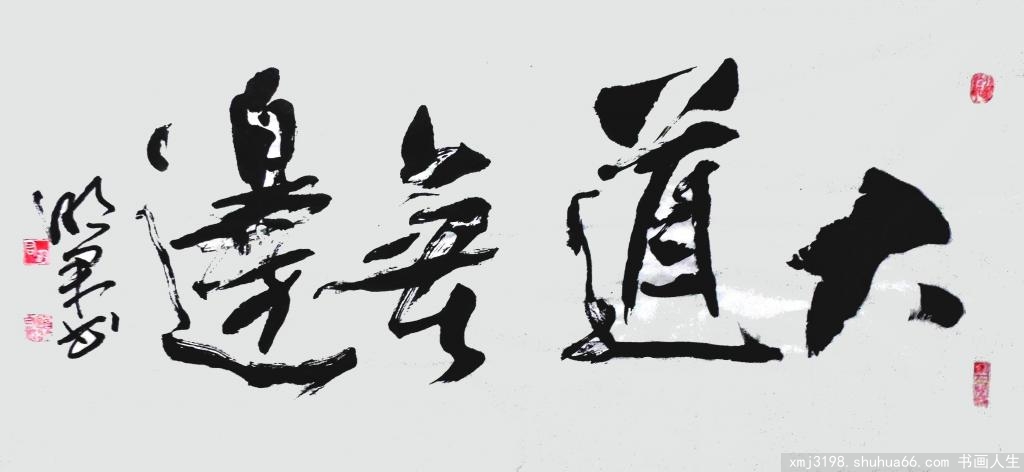 大道無邊
xmj3198.shuhua66.com 书画人生